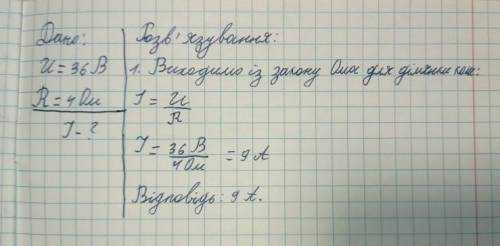 Дано:
U = 36 В
R = 4 Ом
I - ?
Розв'язування:
1. Виходимо із закону Ома для ділянки кола:
I = U/R
I = 36 В/4 Ом = 9 А
Відповідь: 9 А.